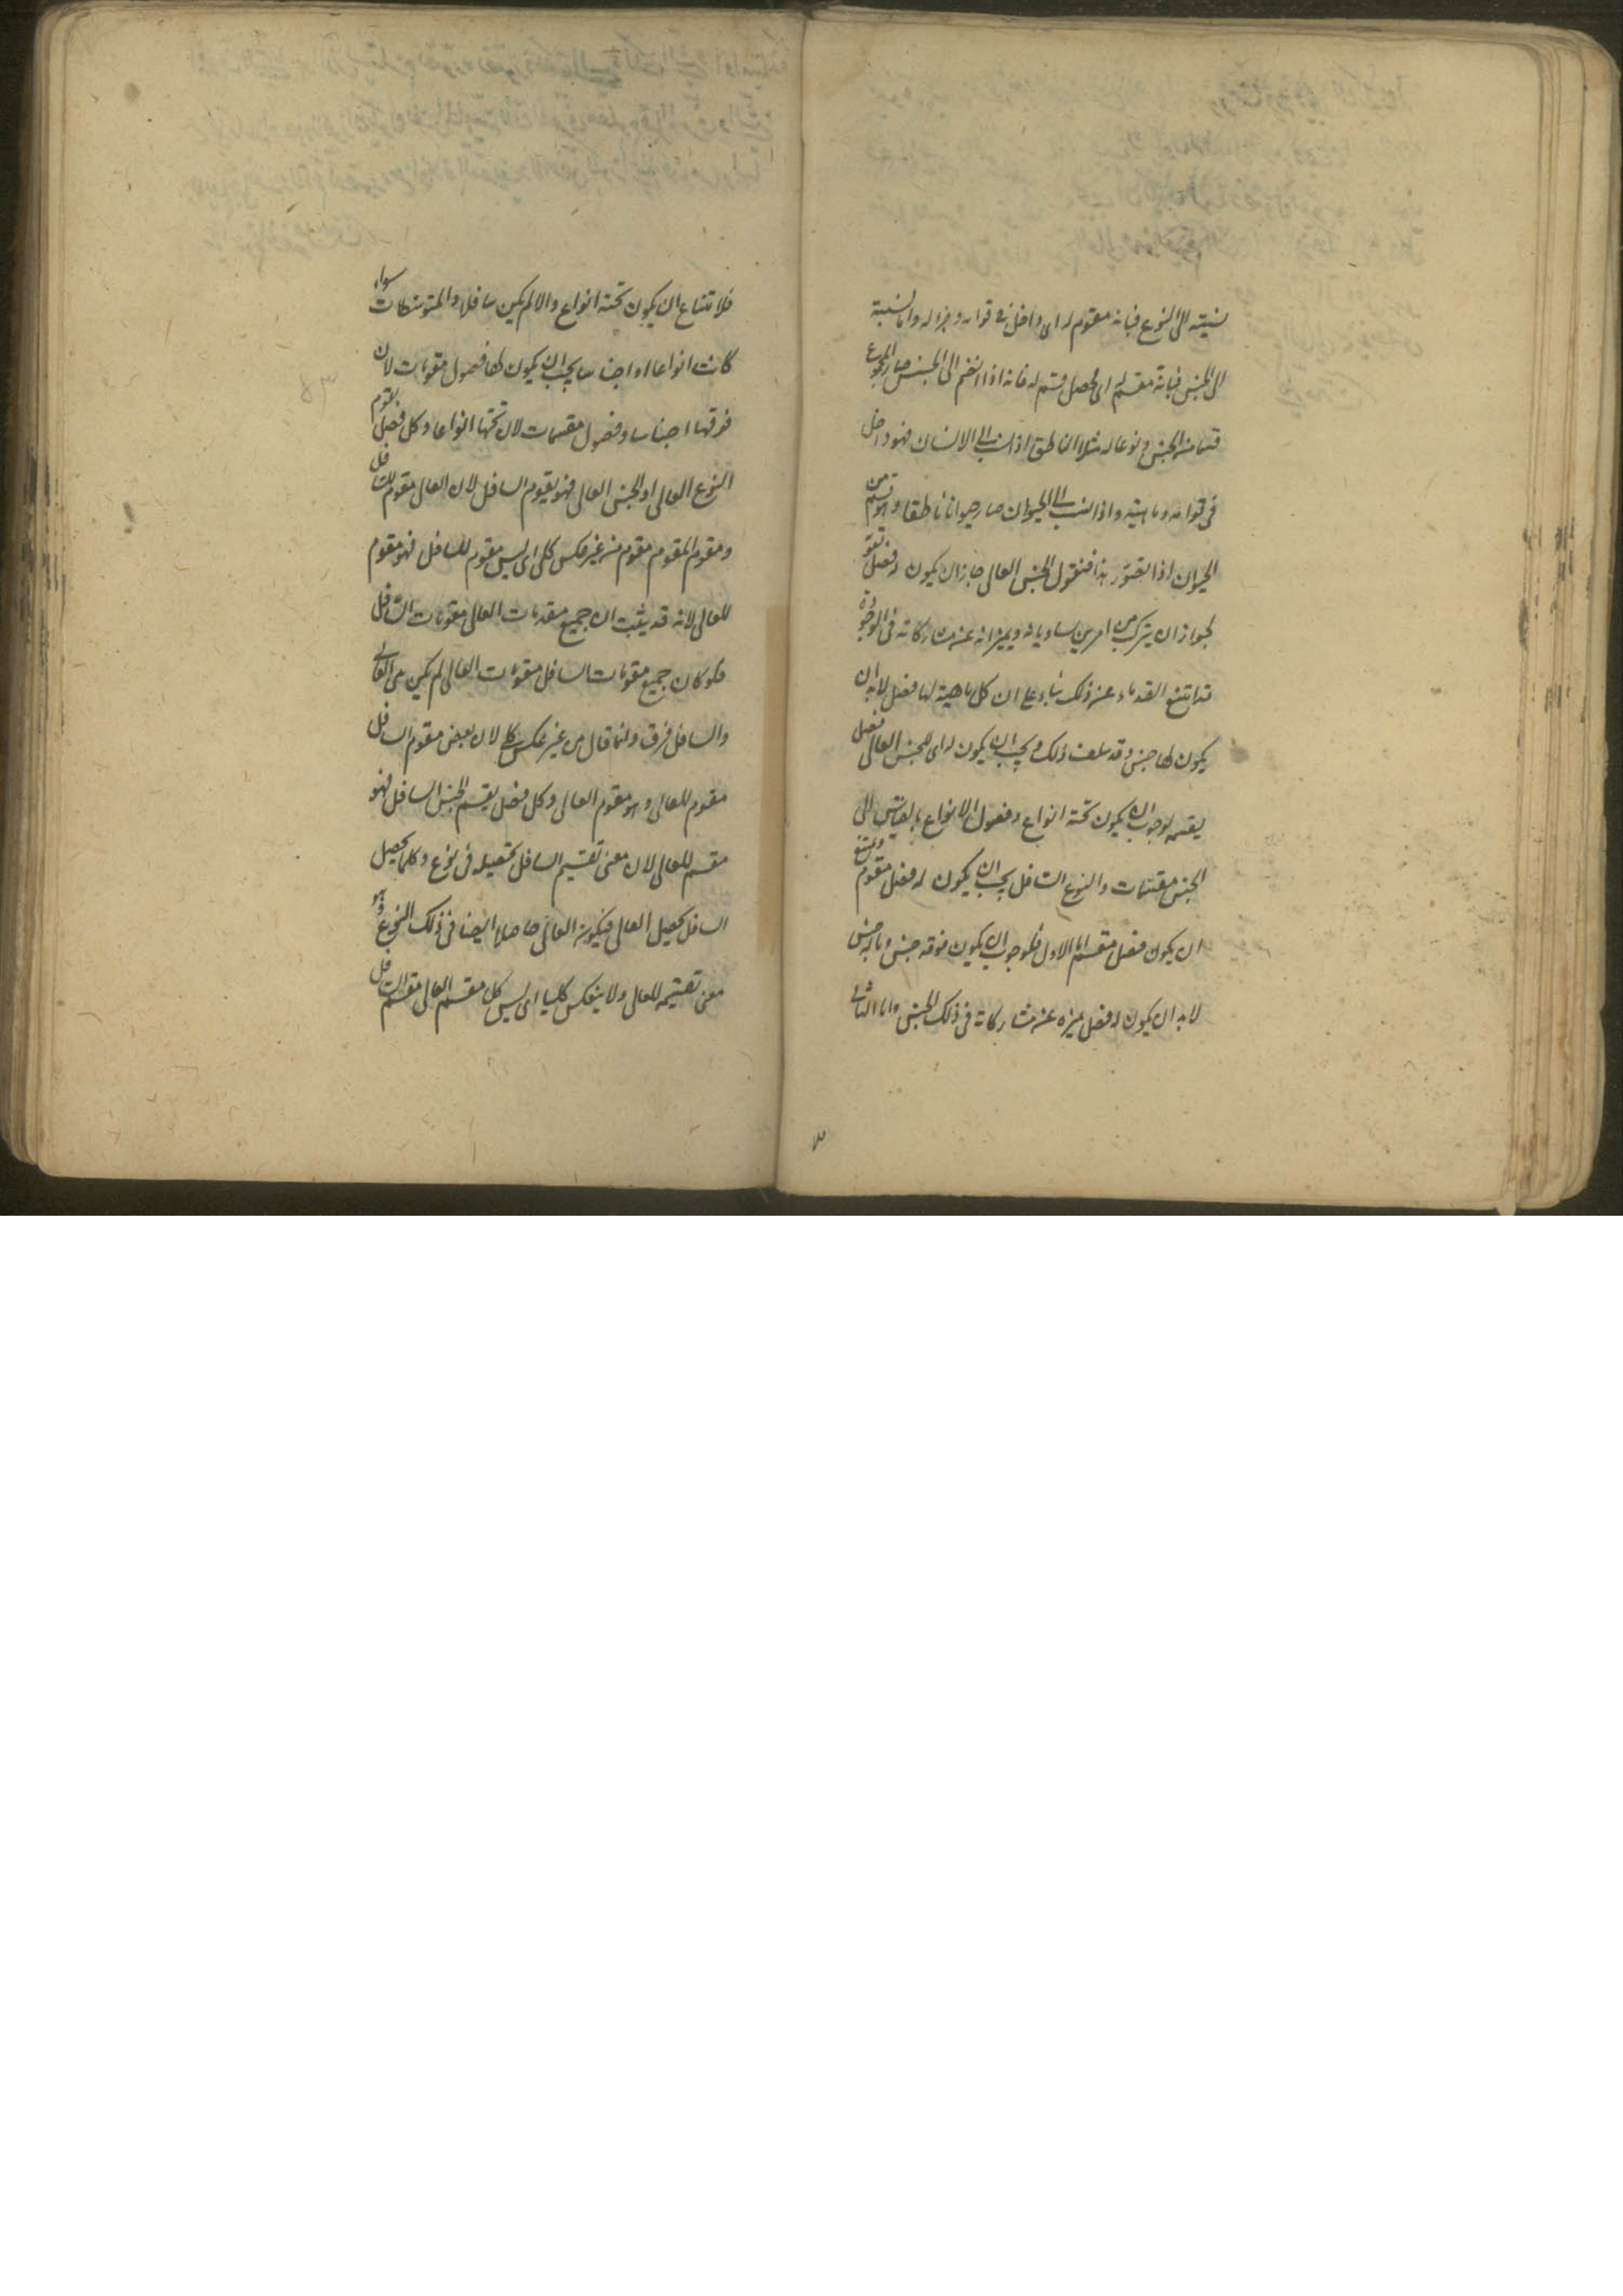 نسبته الى النوع فبانه مقوم له اى داخل فى قوامه وجزء له واما نسبته
الى الجنس فبانه مقسم له اى محصل قسم له فانه اذا انضم الى الجنس صار المجموع
قسما من الجنس ونوعا له مثلا الناطق اذا نسب الى الانسان فهو داخل
فى قوامه وماهيته واذا نسب الى الحيوان صار حيوانا ناطقا وهو قسم من
الحيوان اذا تصور هذا فنقول الجنس العالى جاز ان يكون له فصل يقو
لجواز ان يتركب من امرين يساويانه ويميزانه عن مشاركاته فى الوجود
قد امتنع القدماء عن ذلك بناء على ان كل ماهية لها فصل لابد ان
يكون لها جنس وقد سلف ذلك ويجب ان يكون له اى للجنس العالى فصل
يقسمه لوجوب ان يكون تحته انواع وفصول الانواع بالقياس الى
الجنس مقسمات والنوع السافل يجب ان يكون له فصل مقوم ويمتنع
ان يكون فصل مقسم اما الاول فلوجوب ان يكون فوقه جنس وماله جنس
لابد ان يكون له فصل يميزه عن مشاركاته فى ذلك الجنس واما الثانى
فلامتناع ان يكون تحته انواع والا لم يكن سافلا والمتوسطات سواء
كانت انواعا او اجناسا يجب ان يكون لها فصول مقومات لان
فوقها اجناسا وفصول مقسمات لان تحتها انواعا وكل فصل يقوم
النوع العالى او الجنس العالى فهو يقوم السافل لان العالى مقوم للسافل
ومقوم المقوم مقوم من غير عكس كلى اى ليس مقوم للسافل فهو مقوم
للعالى لانه قد يثبت ان جميع مقومات العالى مقومات السافل
فلو كان جميع مقومات السافل مقومات العالى لم يكن بين العالى
والسافل فرق وانما قال من غير عكس كلى لان بعض مقوم السافل
مقوم للعالى وهو مقوم العالى وكل فصل يقسم الجنس السافل فهو
مقسم للعالى لان معنى تقسيم السافل تحصيله فى نوع وكلما يحصل
السافل يحصل العالى فيكون العالى حاصلا ايضا فى ذلك النوع وهو
معنى تقسيمه للعالى ولا ينعكس كليا اى ليس كل مقسم العالى مقسم السافل